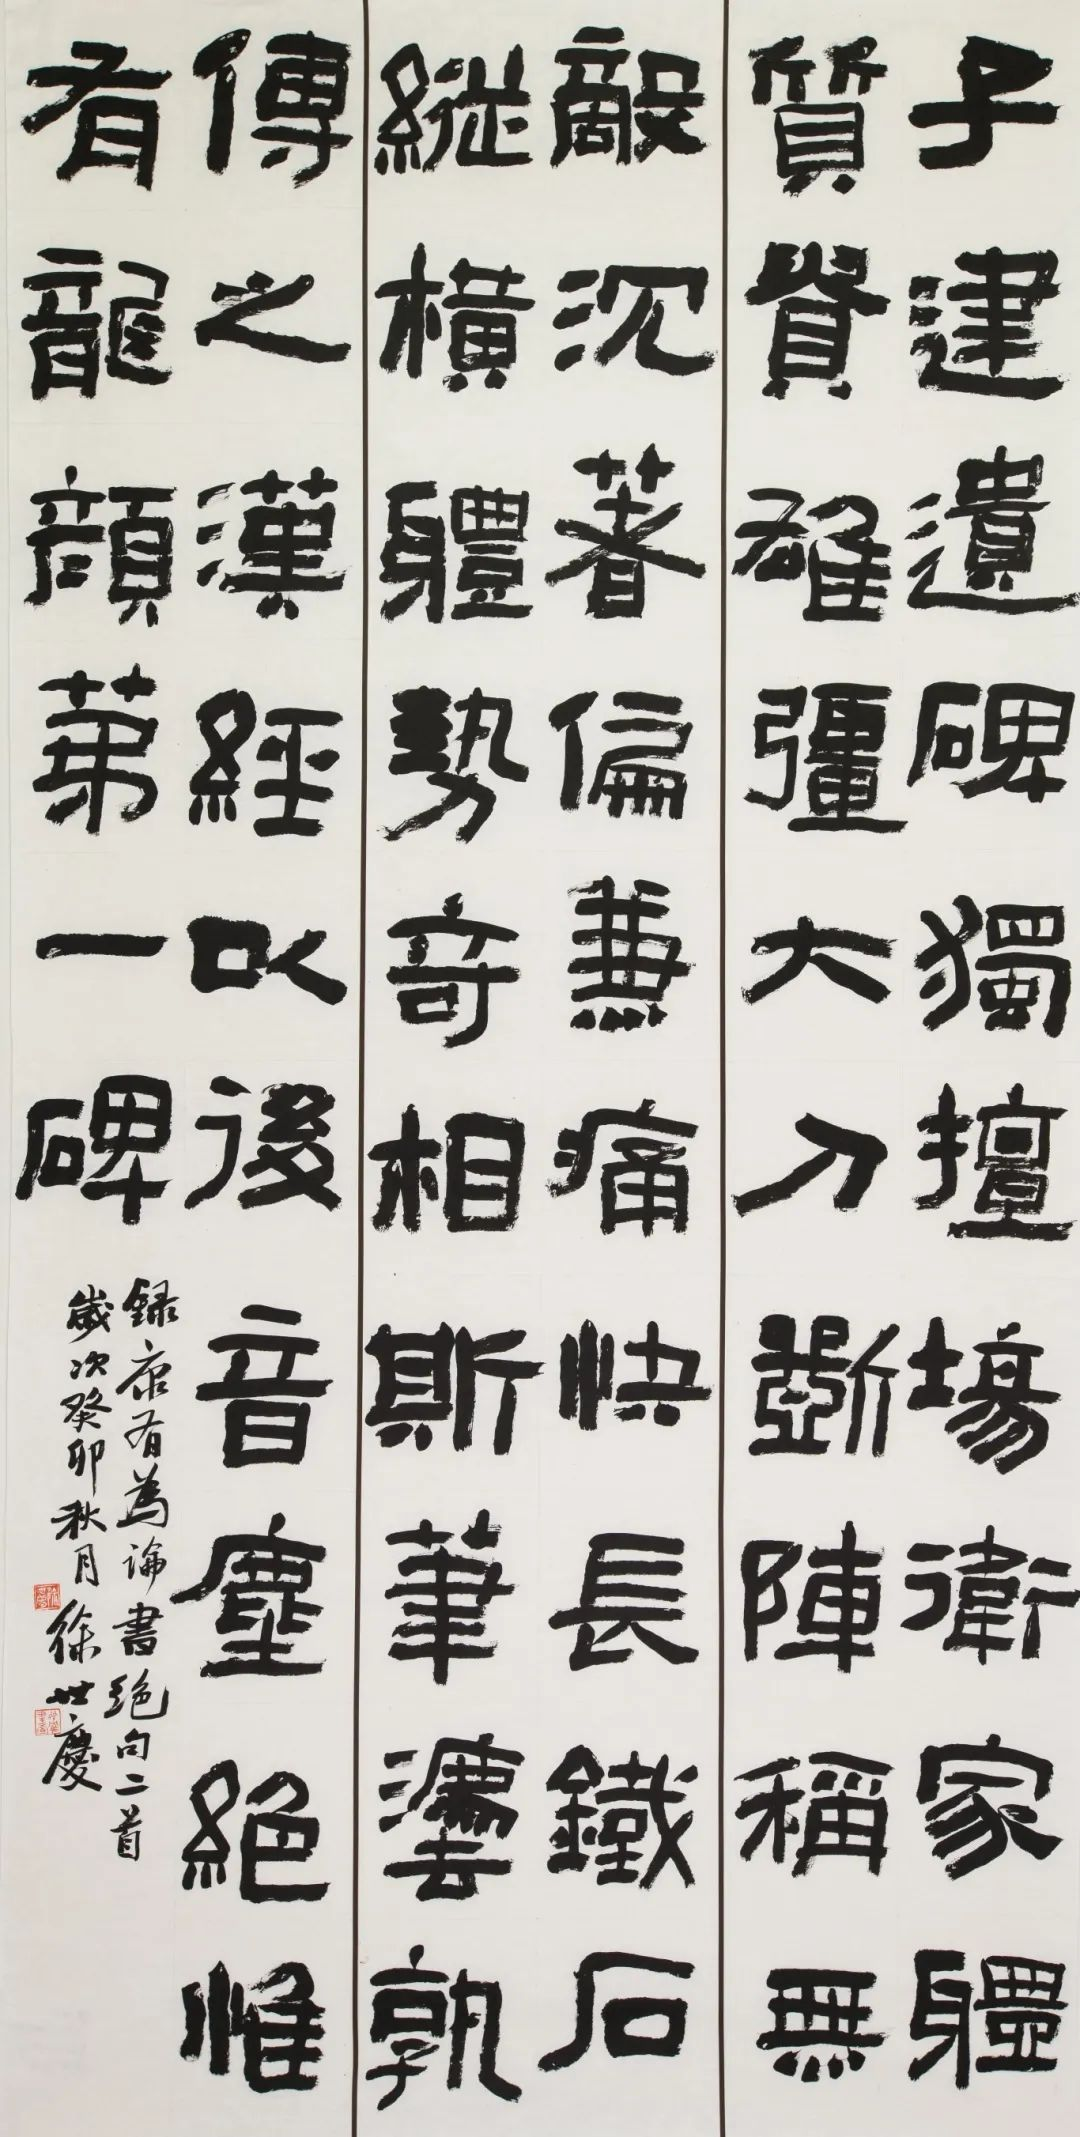 子建遺碑獨擅場衛家體
質雄彊大刀斲陣稱無
敵沉著偏兼痛快長鐵石
縱橫體勢奇相斯筆灋孰
傳之漢經以後音塵絕惟
有龍顏第一碑
録康有為論書絶句二首
歲次癸卯秋月徐世慶